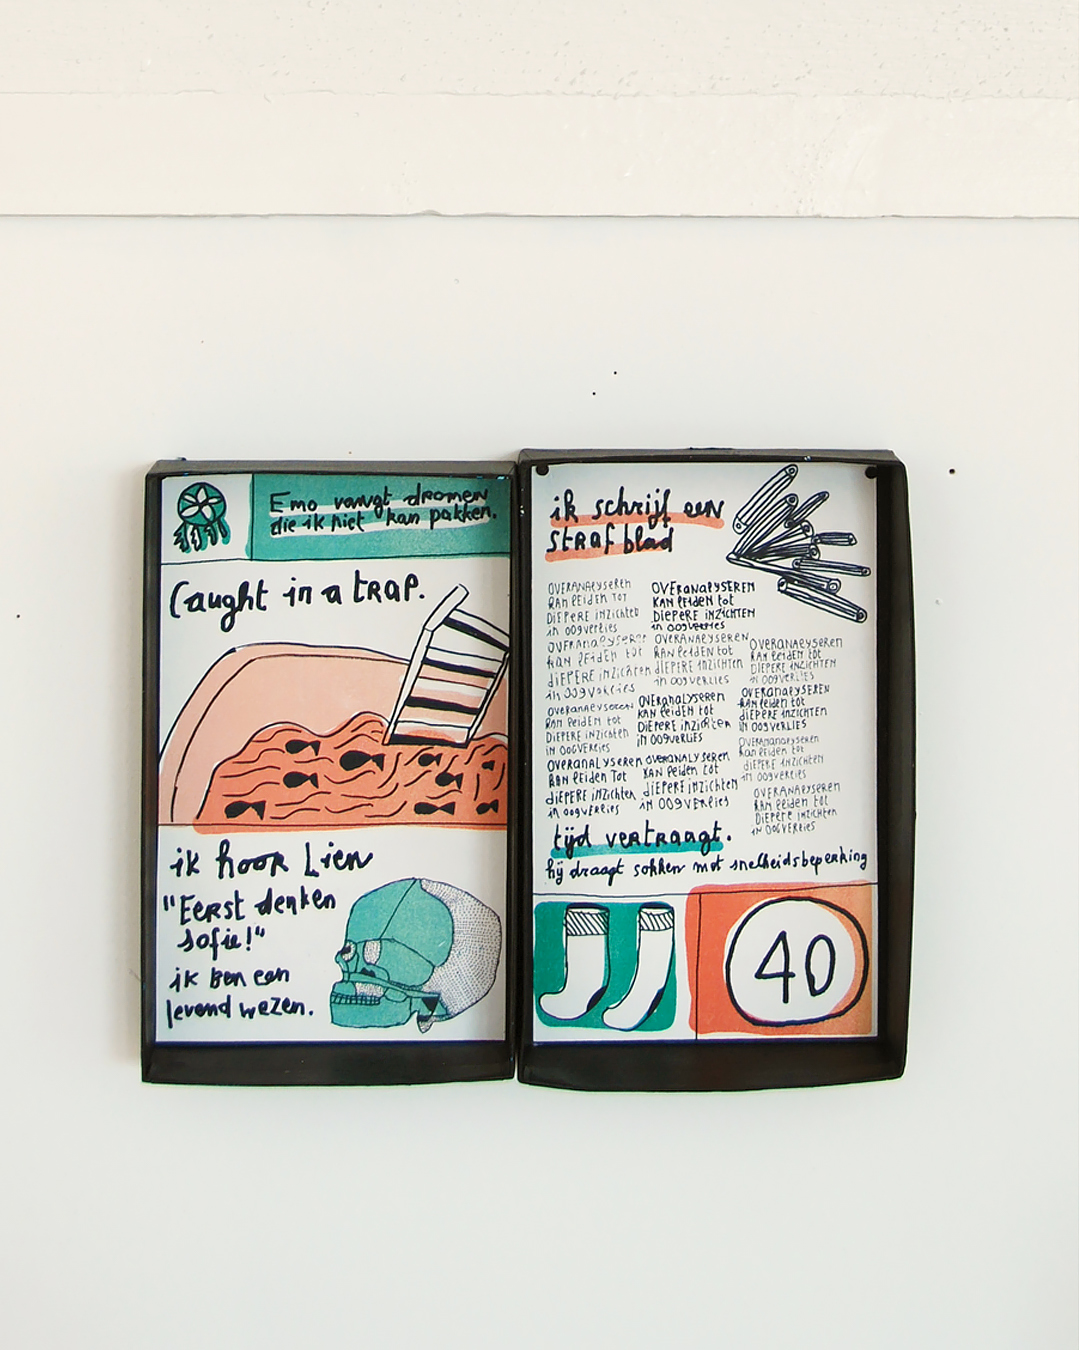 Emo vangt dromen
die ik niet kan pakken.
Caught in a trap.
ik hoor Lien
"Eerst denken
Sofie!"
ik ben een
levend wezen.
ik schrijf een
strafblad
OVERANALYSEREN
KAN leiden TOT
DIEPERE INZICHTEN
in OOGVERLIES
OVERANALYSEREN
KAN leiden tot
DIEPERE INZICHTEN
in OOGVERLIES
OVERANALYSEREN
KAN leiden tot
DIEPERE INZICHTEN
in OOGVERLIES
OVERANALYSEREN
KAN leiden tot
DIEPERE INZICHTEN
in OOGVERLIES
OVERANALYSEREN
KAN leiden tot
DIEPERE INZICHTEN
in OOGVERLIES
OVERANALYSEREN
KAN leiden tot
DIEPERE INZICHTEN
in OOGVERLIES
OVERANALYSEREN
KAN leiden tot
DIEPERE INZICHTEN
in OOGVERLIES
OVERANALYSEREN
KAN leiden tot
DIEPERE INZICHTEN
in OOGVERLIES
OVERANALYSEREN
KAN leiden Tot
DIEPERE INZICHTEN
in OOGVERLIES
OVERANALYSEREN
KAN leiden tot
DIEPERE INZICHTEN
in OOGVERLIES
OVERANALYSEREN
kan leiden tot
DIEPERE INZICHTEN
in OOGVERLIES
OVERANALYSEREN
KAN leiden tot
DIEPERE INZICHTEN
in OOGVERLIES
tijd vertraagt.
hij draagt sokken met snelheidsbeperking
40